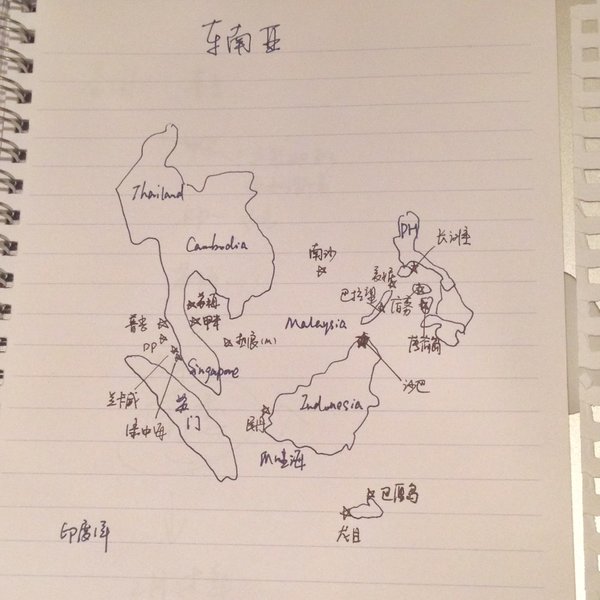 东南亚
Thailand
Cambodia
PH
长滩岛
南沙
巴拉望
宿务
苏梅
甲米
Malaysia
热浪(M)
普吉
PP
薄荷岛
Singapore
兰卡威
沙巴
苏门
Indonesia
民丹
巴厘岛
龙目
印度洋